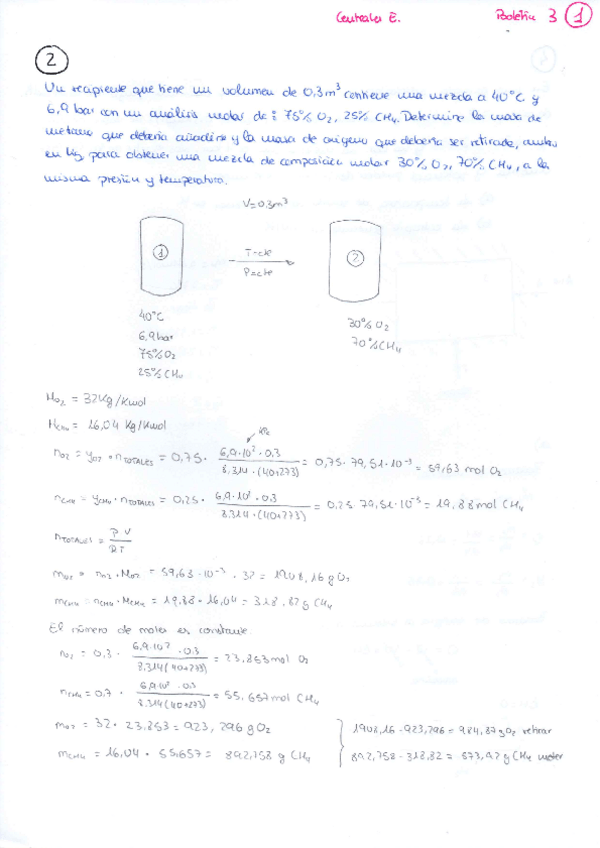 Centrales E. Boletín 3 1
2
Un recipiente que tiene un volumen de 0,3 m³ contiene una mezcla a 40°C y
6,9 bar con un análisis molar de: 75% O₂, 25% CH₄. Determine la masa de
metano que debería añadirse y la masa de oxígeno que debería ser retirada, ambas
en kg para obtener una mezcla de composición molar 30% O₂, 70% CH₄, a la
misma presión y temperatura.
V=0.3m³
1 T=cte 2
P=cte
40°C
6,9 bar
75% O₂
25% CH₄
30% O₂
70% CH₄
M_O₂ = 32 Kg/Kmol
M_CH₄ = 16,04 Kg/Kmol
kPa
n_O₂ = y_O₂ · n_TOTALES = 0,75 · (6,9·10² · 0.3) / (8.314 · (40+273)) = 0,75 · 79,51·10⁻³ = 59,63 mol O₂
n_CH₄ = y_CH₄ · n_TOTALES = 0,25 · (6,9·10² · 0.3) / (8.314 · (40+273)) = 0.25 · 79,51·10⁻³ = 19,88 mol CH₄
n_TOTALES = P·V / R·T
m_O₂ = n_O₂ · M_O₂ = 59,63·10⁻³ · 32 = 1908,16 g O₂
m_CH₄ = n_CH₄ · M_CH₄ = 19,88 · 16,04 = 318,82 g CH₄
El número de moles es constante.
n_O₂ = 0.3 · (6,9·10² · 0.3) / (8.314 (40+273)) = 23,853 mol O₂
n_CH₄ = 0.7 · (6,9·10² · 0.3) / (8.314 (40+273)) = 55,657 mol CH₄
m_O₂ = 32 · 23,853 = 923,296 g O₂
m_CH₄ = 16,04 · 55.657 = 892,758 g CH₄
1908,16 - 923,296 = 984,87 g O₂ retirar
892,758 - 318,82 = 573,92 g CH₄ meter